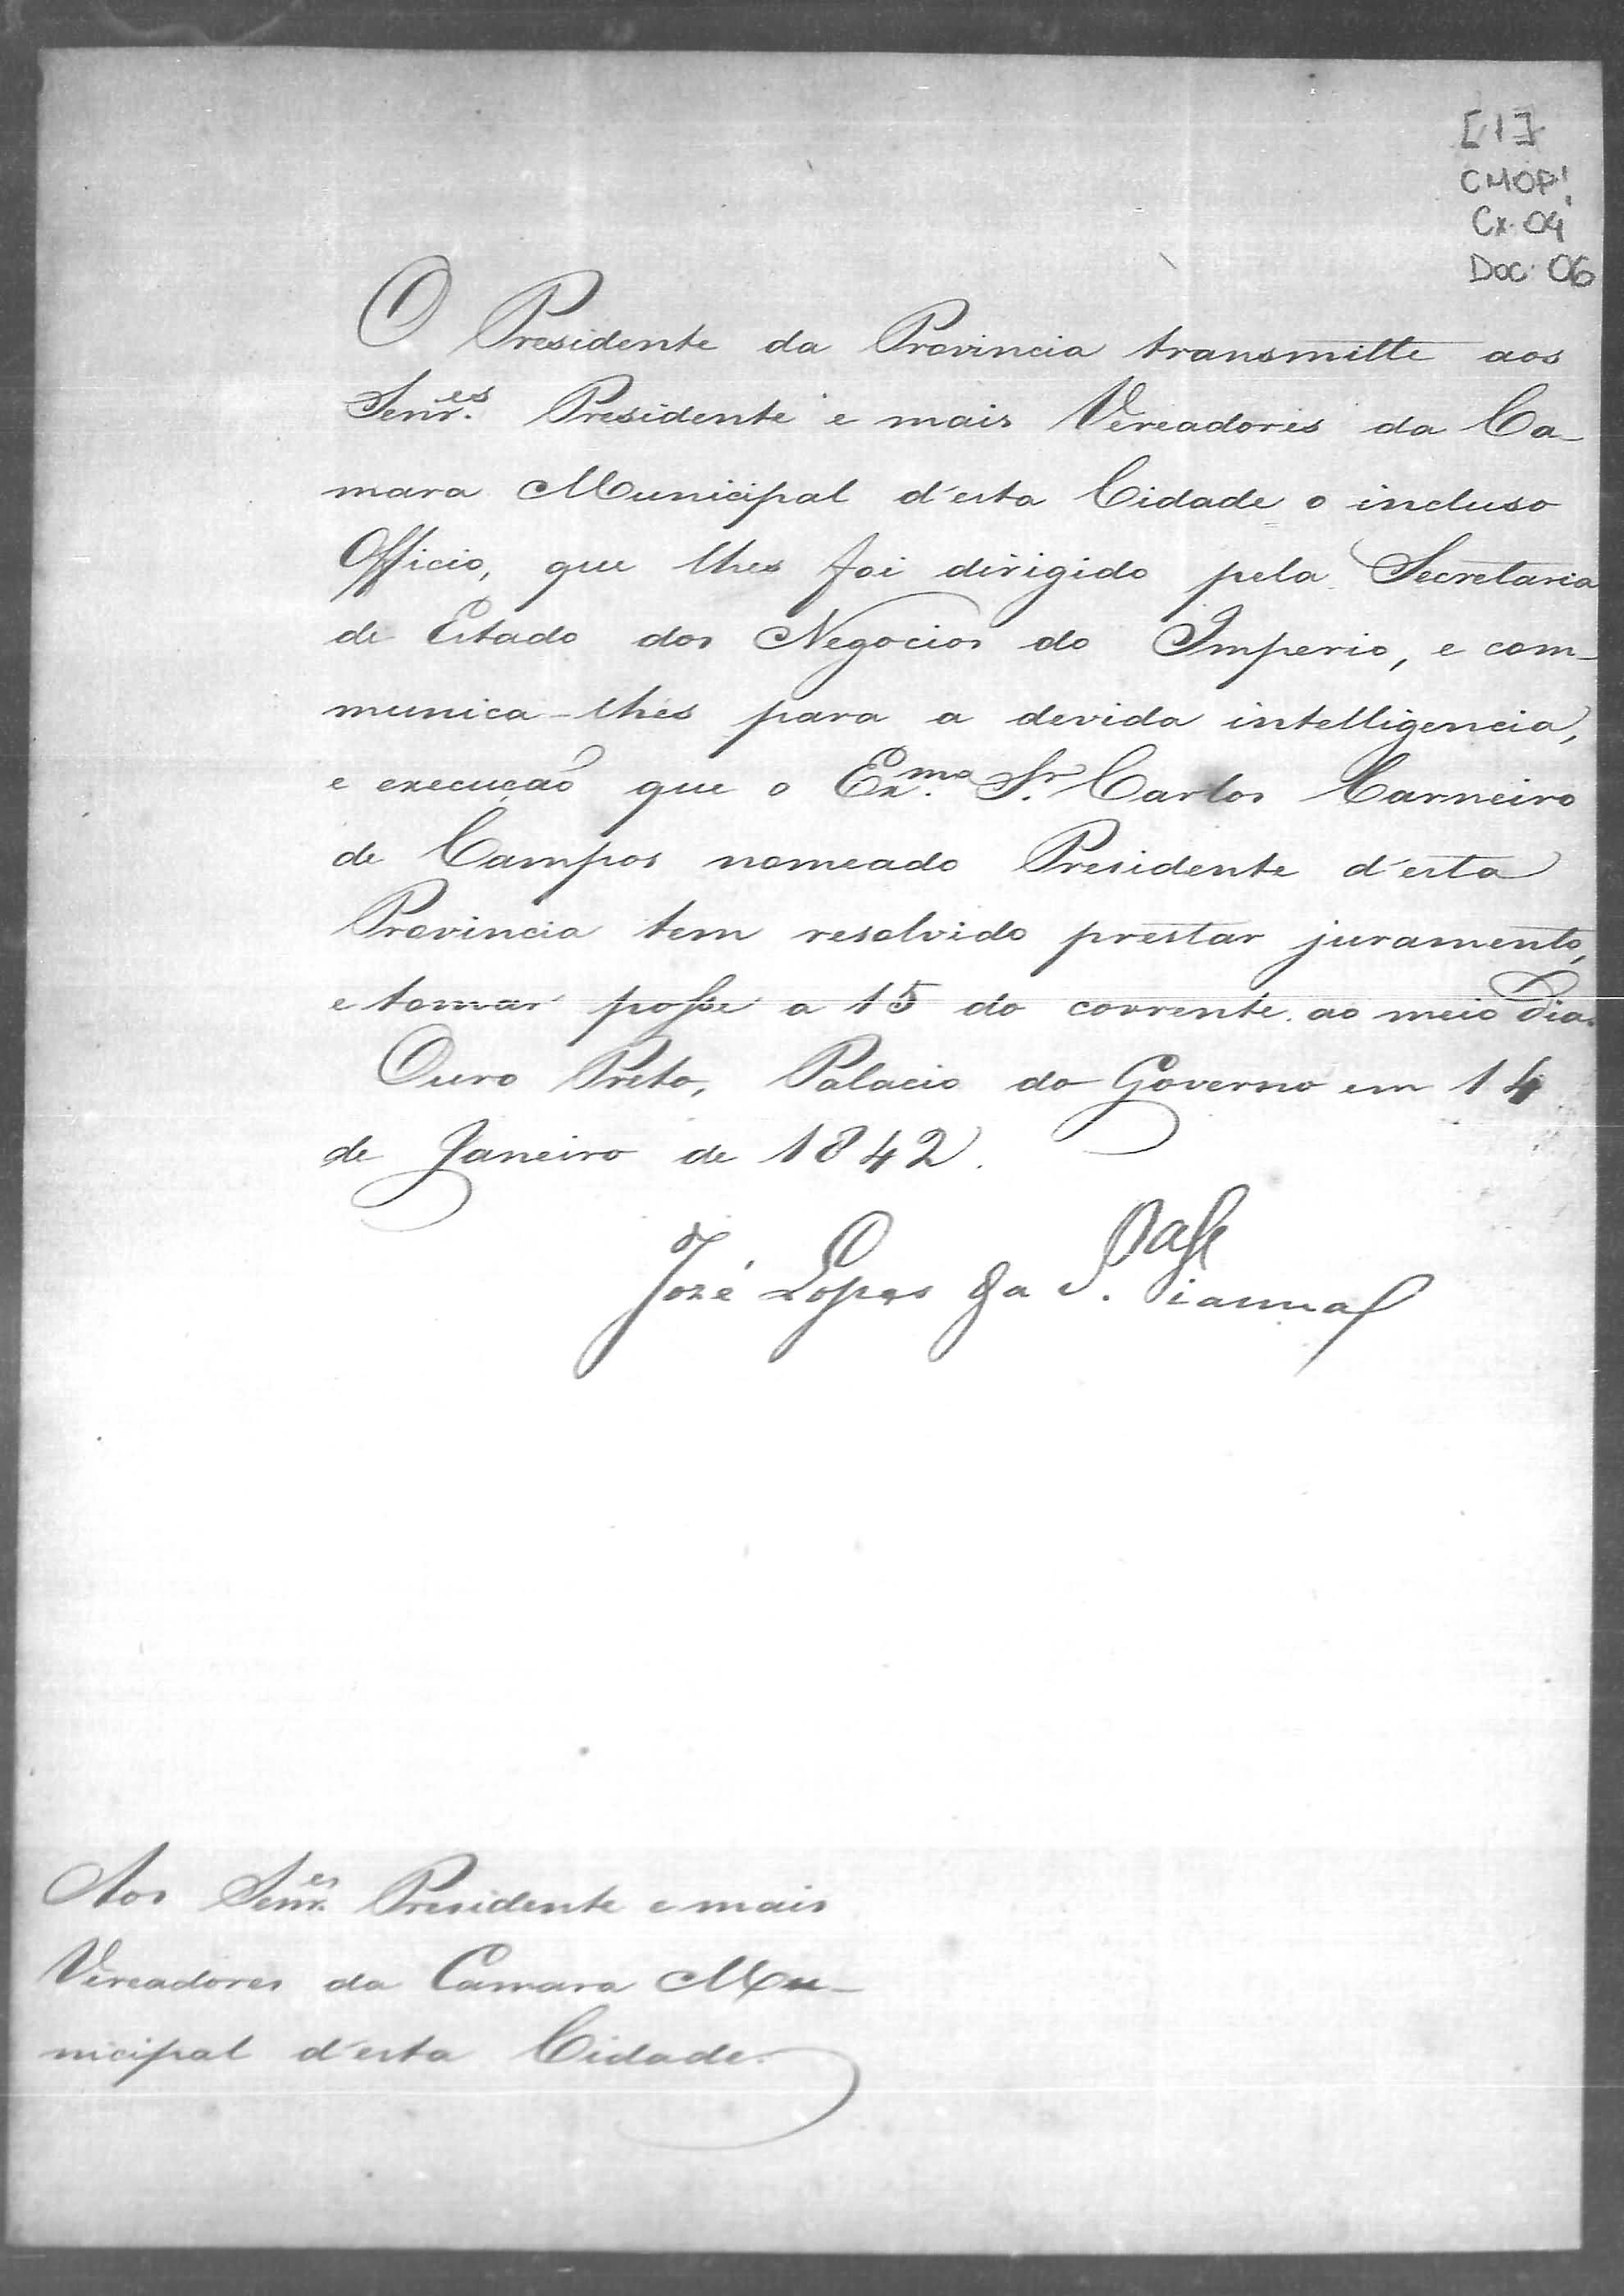 [1]
CMOP
Cx. 04
Doc. 06
O Presidente da Provincia transmitte aos
Senr.es Presidente e mais Vereadores da Ca-
mara Municipal d'esta Cidade o incluso
Officio, que lhes foi dirigido pela Secretaria
de Estado dos Negocios do Imperio, e com-
munica-lhes para a devida intelligencia,
e execução que o Ex.mo Sr. Carlos Carneiro
de Campos nomeado Presidente d'esta
Provincia tem resolvido prestar juramento,
e tomar posse a 15 do corrente ao meio dia.
Ouro Preto, Palacio do Governo em 14
de Janeiro de 1842.
José Lopes da S. Vianna
Aos Senr.es Presidente e mais
Vereadores da Camara Mu-
nicipal d'esta Cidade.